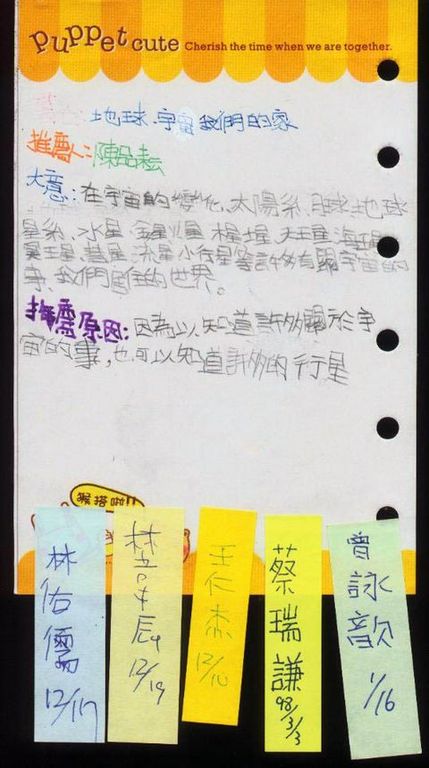 Puppet cute Cherish the time when we are together.
書名:地球.宇宙我們的家
推薦人:陳品耘
大意:在宇宙的變化、太陽系、月球、地球
星系、水星、金星、火星、木星、土星、天王星、海王星、
冥王星、彗星、流星、小行星等許多有關宇宙的
事、我們居住的世界。
推薦原因:因為可以知道許多關於宇
宙的事,也可以知道許多的行星
猴搭啦!!
林佑儒
12/17
林
辰
12/19
王仁杰
12/10
蔡瑞謙
98/3/3
曾詠歆
1/16